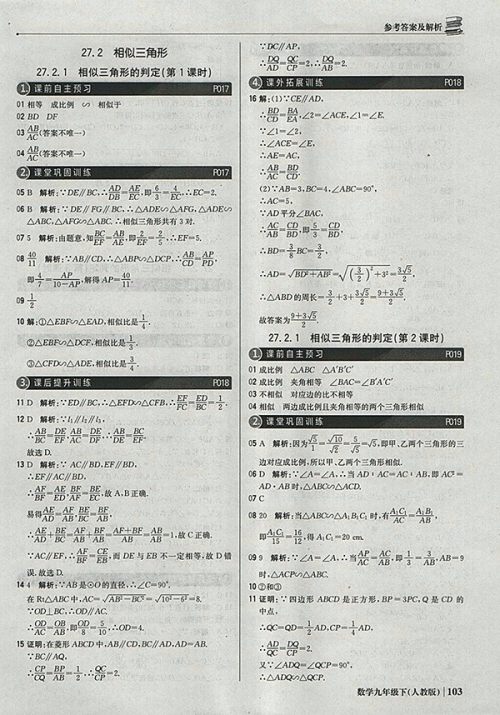 参考答案及解析
27.2 相似三角形
27.2.1 相似三角形的判定(第1课时)
1. 课前自主预习 P017
01 相等 成比例 ∽ 相似于
02 BD DF
03 AB/AC(答案不唯一)
04 AB/AC(答案不唯一)
2. 课堂巩固训练 P017
05 B 解析:∵DE∥BC,∴AD/DB=AE/EC,即6/3=4/EC,∴EC=2.
06 B 解析:∵DE∥FG∥BC,∴△ADE∽△AFG,△ADE∽
△ABC,△AFG∽△ABC.∴相似三角形共有3对.
07 5 解析:由题意,知BC/EF=AB/AE,即2/EF=2/5.∴EF=5.
08 40/11 解析:∵AB∥CD,∴△ABP∽△DCP,∴AB/CD=AP/PD,
即4/7=AP/(10-AP),解得AP=40/11.
09 1/2
10 解:①△EBF∽△EAD,相似比是1/4.
②△EBF∽△DCF,相似比是1/3.
③△CFD∽△ADE,相似比是3/4.
3. 课后提升训练 P018
11 D 解析:∵ED∥BC,∴△EFD∽△CFB,∴EF/FC=ED/BC=1/2.
12 D 解析:∵l₁∥l₂∥l₃,
∴AB/BC=DE/EF,AB/AC=DE/DF,AB/DE=BC/EF=AC/DF.
故选D.
13 D 解析:∵AC∥BD,EF∥BD,
∴EF∥AC∥BD,
∴AF/BF=AE/ED,AF/BF=AE/EC,故A,B正确.
易得AE/AD=AF/AB,BE/BC=BF/AB,
∴AE/AD+BE/BC=AF/AB+BF/AB=(AF+BF)/AB=AB/AB=1,故C正确.
∵AC∥EF,∴AF/BF=CE/EB,而DE与EB不一定相等,故D错
误.故选D.
14 4 解析:∵AB是⊙O的直径,∴∠C=90°.
在Rt△ABC中,AC=√(AB²-BC²)=√(10²-6²)=8.
∵OD⊥BC,∴OD∥AC,
∴OD/AC=OB/AB,即OD/8=5/10,∴OD=4.
15 证明:在菱形ABCD中,AB∥CD,BC∥AD,AD=AB.
∵BC∥AQ,
∴CP/CQ=BP/AB=1/2,∴QC/CP=2.
∵DC∥AP,
∴DQ/AD=QC/CP=2,∴DQ/AB=2.
4. 课外拓展训练 P018
16 解:(1)∵CE∥AD,
∴BD/CD=BA/EA,∠2=∠ACE,∠1=∠E.
∵∠1=∠2,
∴∠ACE=∠E,
∴AE=AC,
∴AB/AC=BD/CD.
(2)∵AB=3,BC=4,∠ABC=90°,
∴AC=5,
∵AD平分∠BAC,
∴AC/AB=CD/BD,即5/3=CD/BD,
∴BD=3/8BC=3/2,
∴AD=√(BD²+AB²)=√((3/2)²+3²)=3√5/2,
∴△ABD的周长=3/2+3+3√5/2=(9+3√5)/2.
故答案为(9+3√5)/2.
27.2.1 相似三角形的判定(第2课时)
1. 课前自主预习 P019
01 成比例 △ABC △A′B′C′
02 成比例 夹角相等 ∠BAC=∠B′A′C′
03 不相似 对应边的比不相等
04 相似 两边成比例且夹角相等的两个三角形相似
2. 课堂巩固训练 P019
05 A 解析:因为√5/1=√10/√2=5/√5=√5,即甲、乙两个三角形的三
边对应成比例,所以甲、乙两个三角形相似.
06 D 解析:∵∠A=∠A,∴当AD:AC=AC:AB,即AC²=
AD·AB时,△ABC∽△ACD.
07 C
08 20 解析:当△ABC∽△A₁B₁C₁时,有A₁C₁/AC=A₁B₁/AB,
即A₁C₁/15=16/12,得A₁C₁=20 cm.
09 9 解析:∵∠A=∠A,∴当AP/AC=AC/AB,即1/3=3/AB,AB=9
时,△ACP∽△ABC.
10 ②和③
11 证明:∵四边形ABCD是正方形,BP=3PC,Q是CD的
中点,
∴QC=QD=1/2AD,CP=1/4AD,
∴AD/QC=DQ/CP=2.
又∵∠ADQ=∠QCP=90°,
∴△ADQ∽△QCP.
数学九年级下(人教版) 103